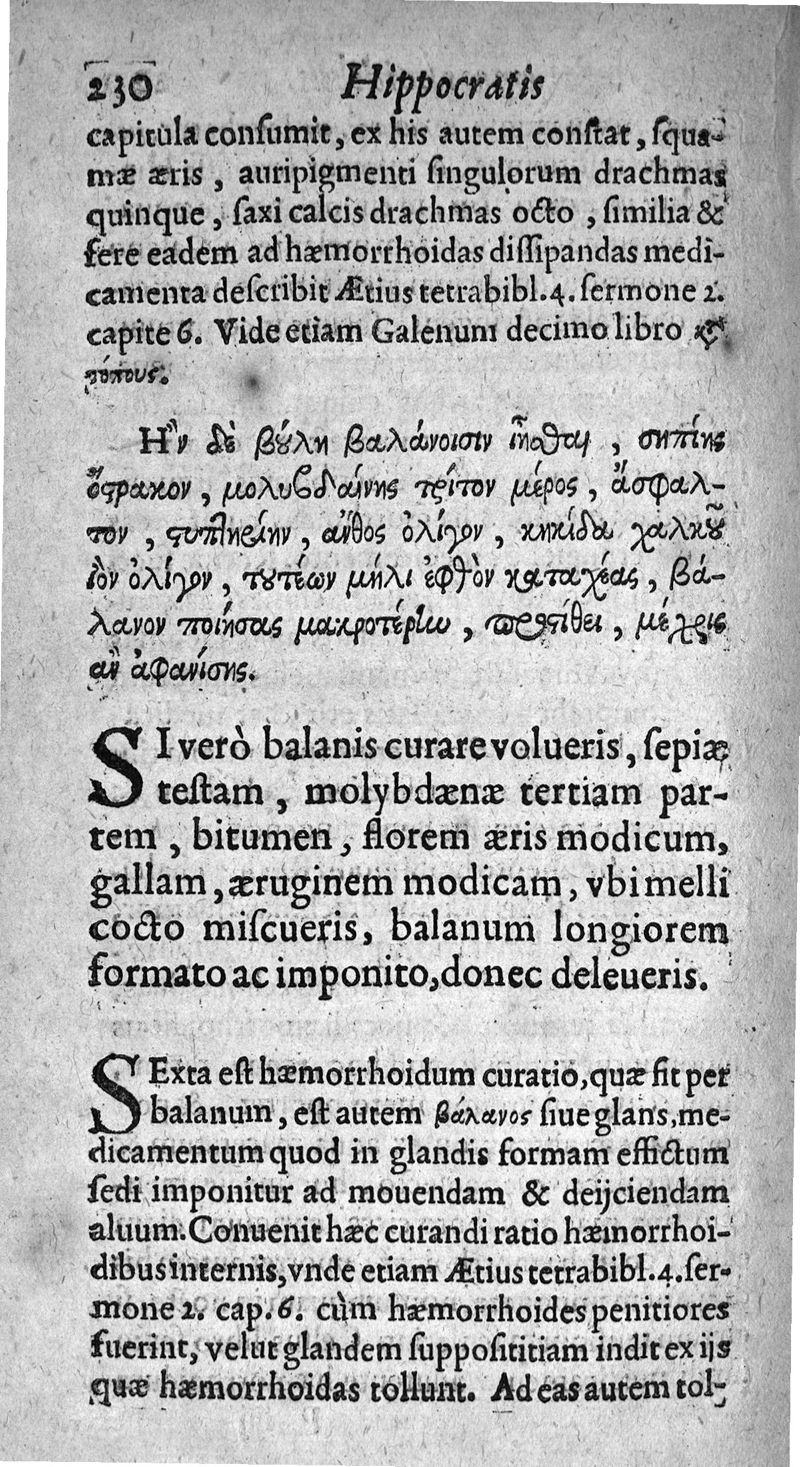 230 Hippocratis
capitula consumit, ex his autem constat, squa-
mæ æris, auripigmenti singulorum drachmas
quinque, saxi calcis drachmas octo, similia &
fere eadem ad hæmorrhoidas dissipandas medi-
camenta describit Ætius tetrabibl. 4. sermone 2.
capite 6. Vide etiam Galenum decimo libro κτ̀
τόπους.
Ην δὲ βούλη βαλάνοισιν ἰῆσθαι, σηπίης
ὄστρακον, μολυβδαίνης τρίτον μέρος, ἄσφαλ-
τον, στυπτηρίην, ἄνθος ὀλίγον, κηκίδα χαλκοῦ
ἰὸν ὀλίγον, τουτέων μήλι ἐφθὸν καταχέας, βά-
λανον ποιήσας μακροτέρην, προστίθει, μέχρις
ἂν ἀφανίσῃς.
SI verò balanis curare volueris, sepiæ
testam, molybdænæ tertiam par-
tem, bitumen, florem æris modicum,
gallam, æruginem modicam, vbi melli
cocto miscueris, balanum longiorem
formato ac imponito, donec deleueris.
SExta est hæmorrhoidum curatio, quæ fit per
balanum, est autem βάλανος siue glans, me-
dicamentum quod in glandis formam effictum
sedi imponitur ad mouendam & deijciendam
aluum. Conuenit hæc curandi ratio hæmorrhoi-
dibus internis, vnde etiam Ætius tetrabibl. 4. ser-
mone 2. cap. 6. cùm hæmorrhoides penitiores
fuerint, velut glandem supposititiam indit ex ijs
quæ hæmorrhoidas tollunt. Ad eas autem tol-